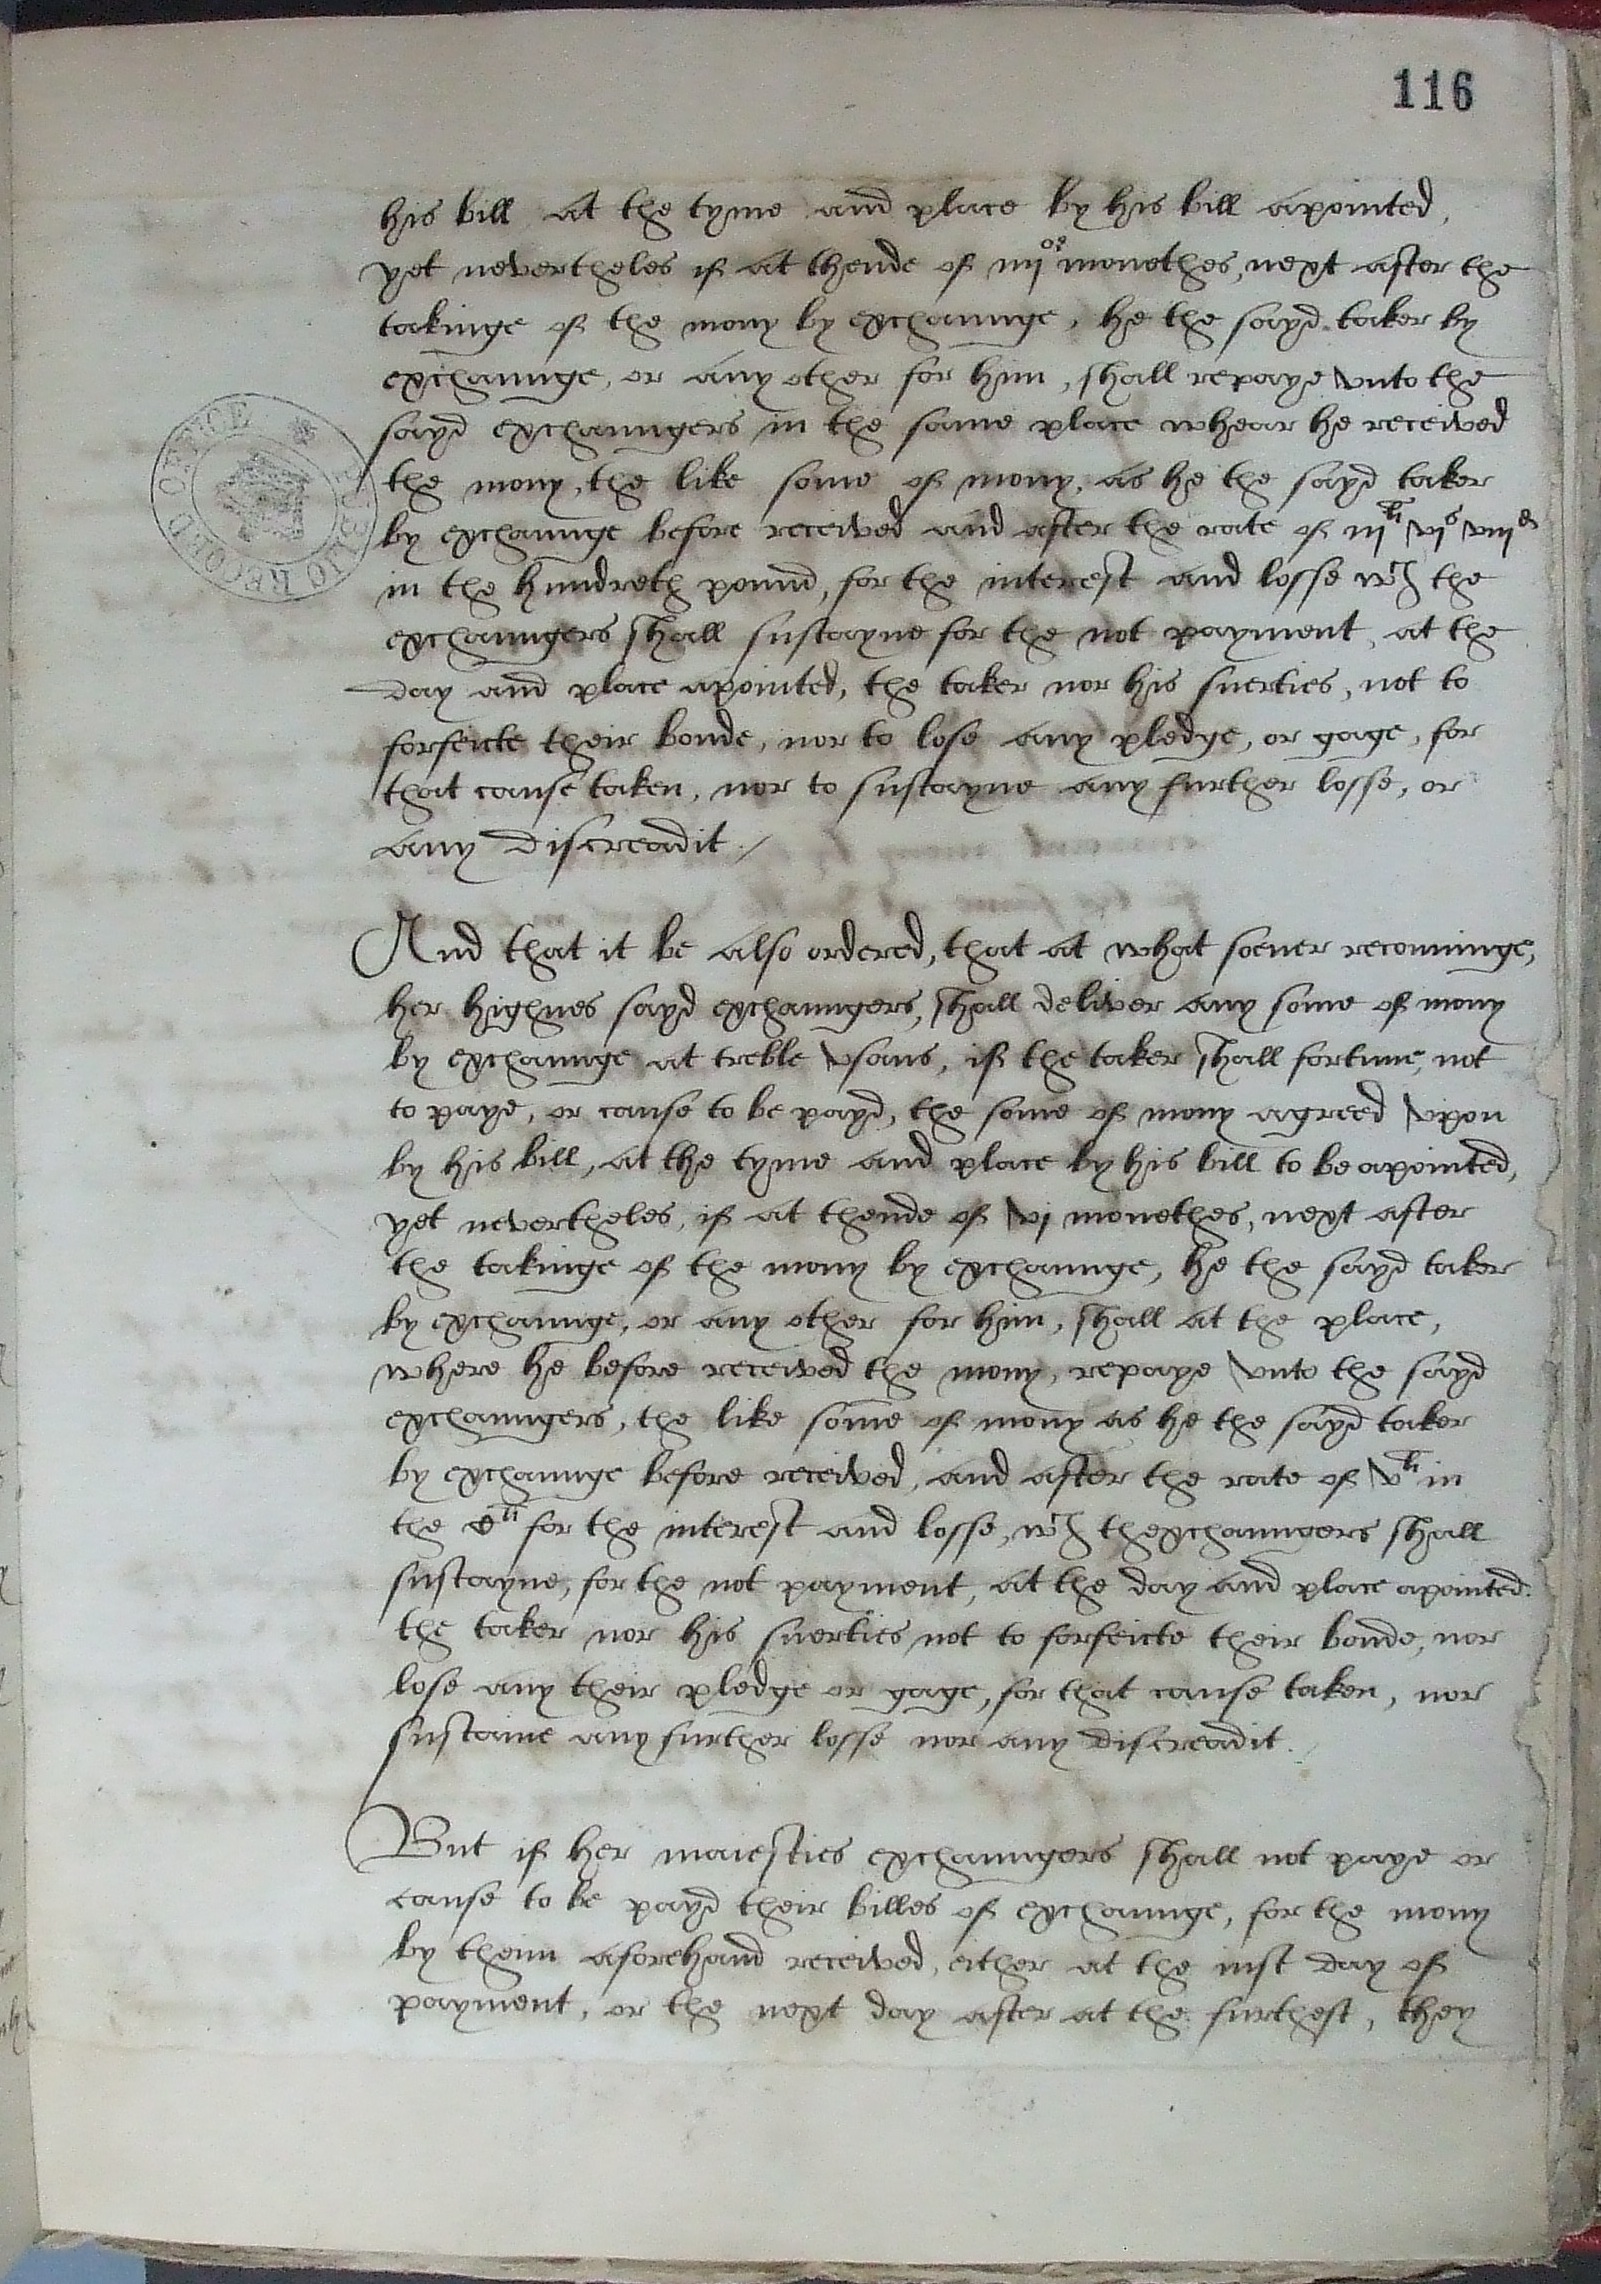 116
his bill at the tyme and place by his bill apointed,
yet nevertheles if at thende of iiij^or monethes, next after the
takinge of the mony by exchaunge, he the sayd taker by
exchaunge, or any other for him, shall repaye vnto the
sayd exchaungers in the same place whear he received
the mony, the like some of mony, as he the sayd taker
by exchaunge before received and after the rate of iij^li vj^s viij^d
in the hundreth pound, for the interest and losse w^ch the
exchaungers shall sustayne for the not payment, at the
day and place apointed, the taker nor his suerties, not to
forfeicte their bonde, nor to lose any pledge, or gage, for
that cause taken, nor to sustayne any further losse, or
any discreadit /
And that it be also ordered, that at what soeuer reconninge,
her highnes sayd exchaungers, shall deliver any some of mony
by exchaunge at treble vsans, if the taker shall fortune, not
to paye, or cause to be payd, the some of mony agreed vpon
by his bill, at the tyme and place by his bill to be apointed,
yet nevertheles, if at thende of vj monethes, next after
the takinge of the mony by exchaunge, he the sayd taker
by exchaunge, or any other for him, shall at the place,
where he before received the mony, repaye vnto the sayd
exchaungers, the like some of mony as he the sayd taker
by exchaunge before received, and after the rate of v^li in
the C^li for the interest and losse, w^ch thexchaungers shall
sustayne, for the not payment, at the day and place apointed.
the taker nor his suerties not to forfeicte their bonde, nor
lose any their pledge or gage, for that cause taken, nor
sustaine any further losse nor any discreadit. /
But if her maiesties exchaungers shall not paye or
cause to be payd their billes of exchaunge, for the mony
by theim aforehand received, either at the iust day of
payment, or the next day after at the furthest, they
PUBLIC RECORD OFFICE